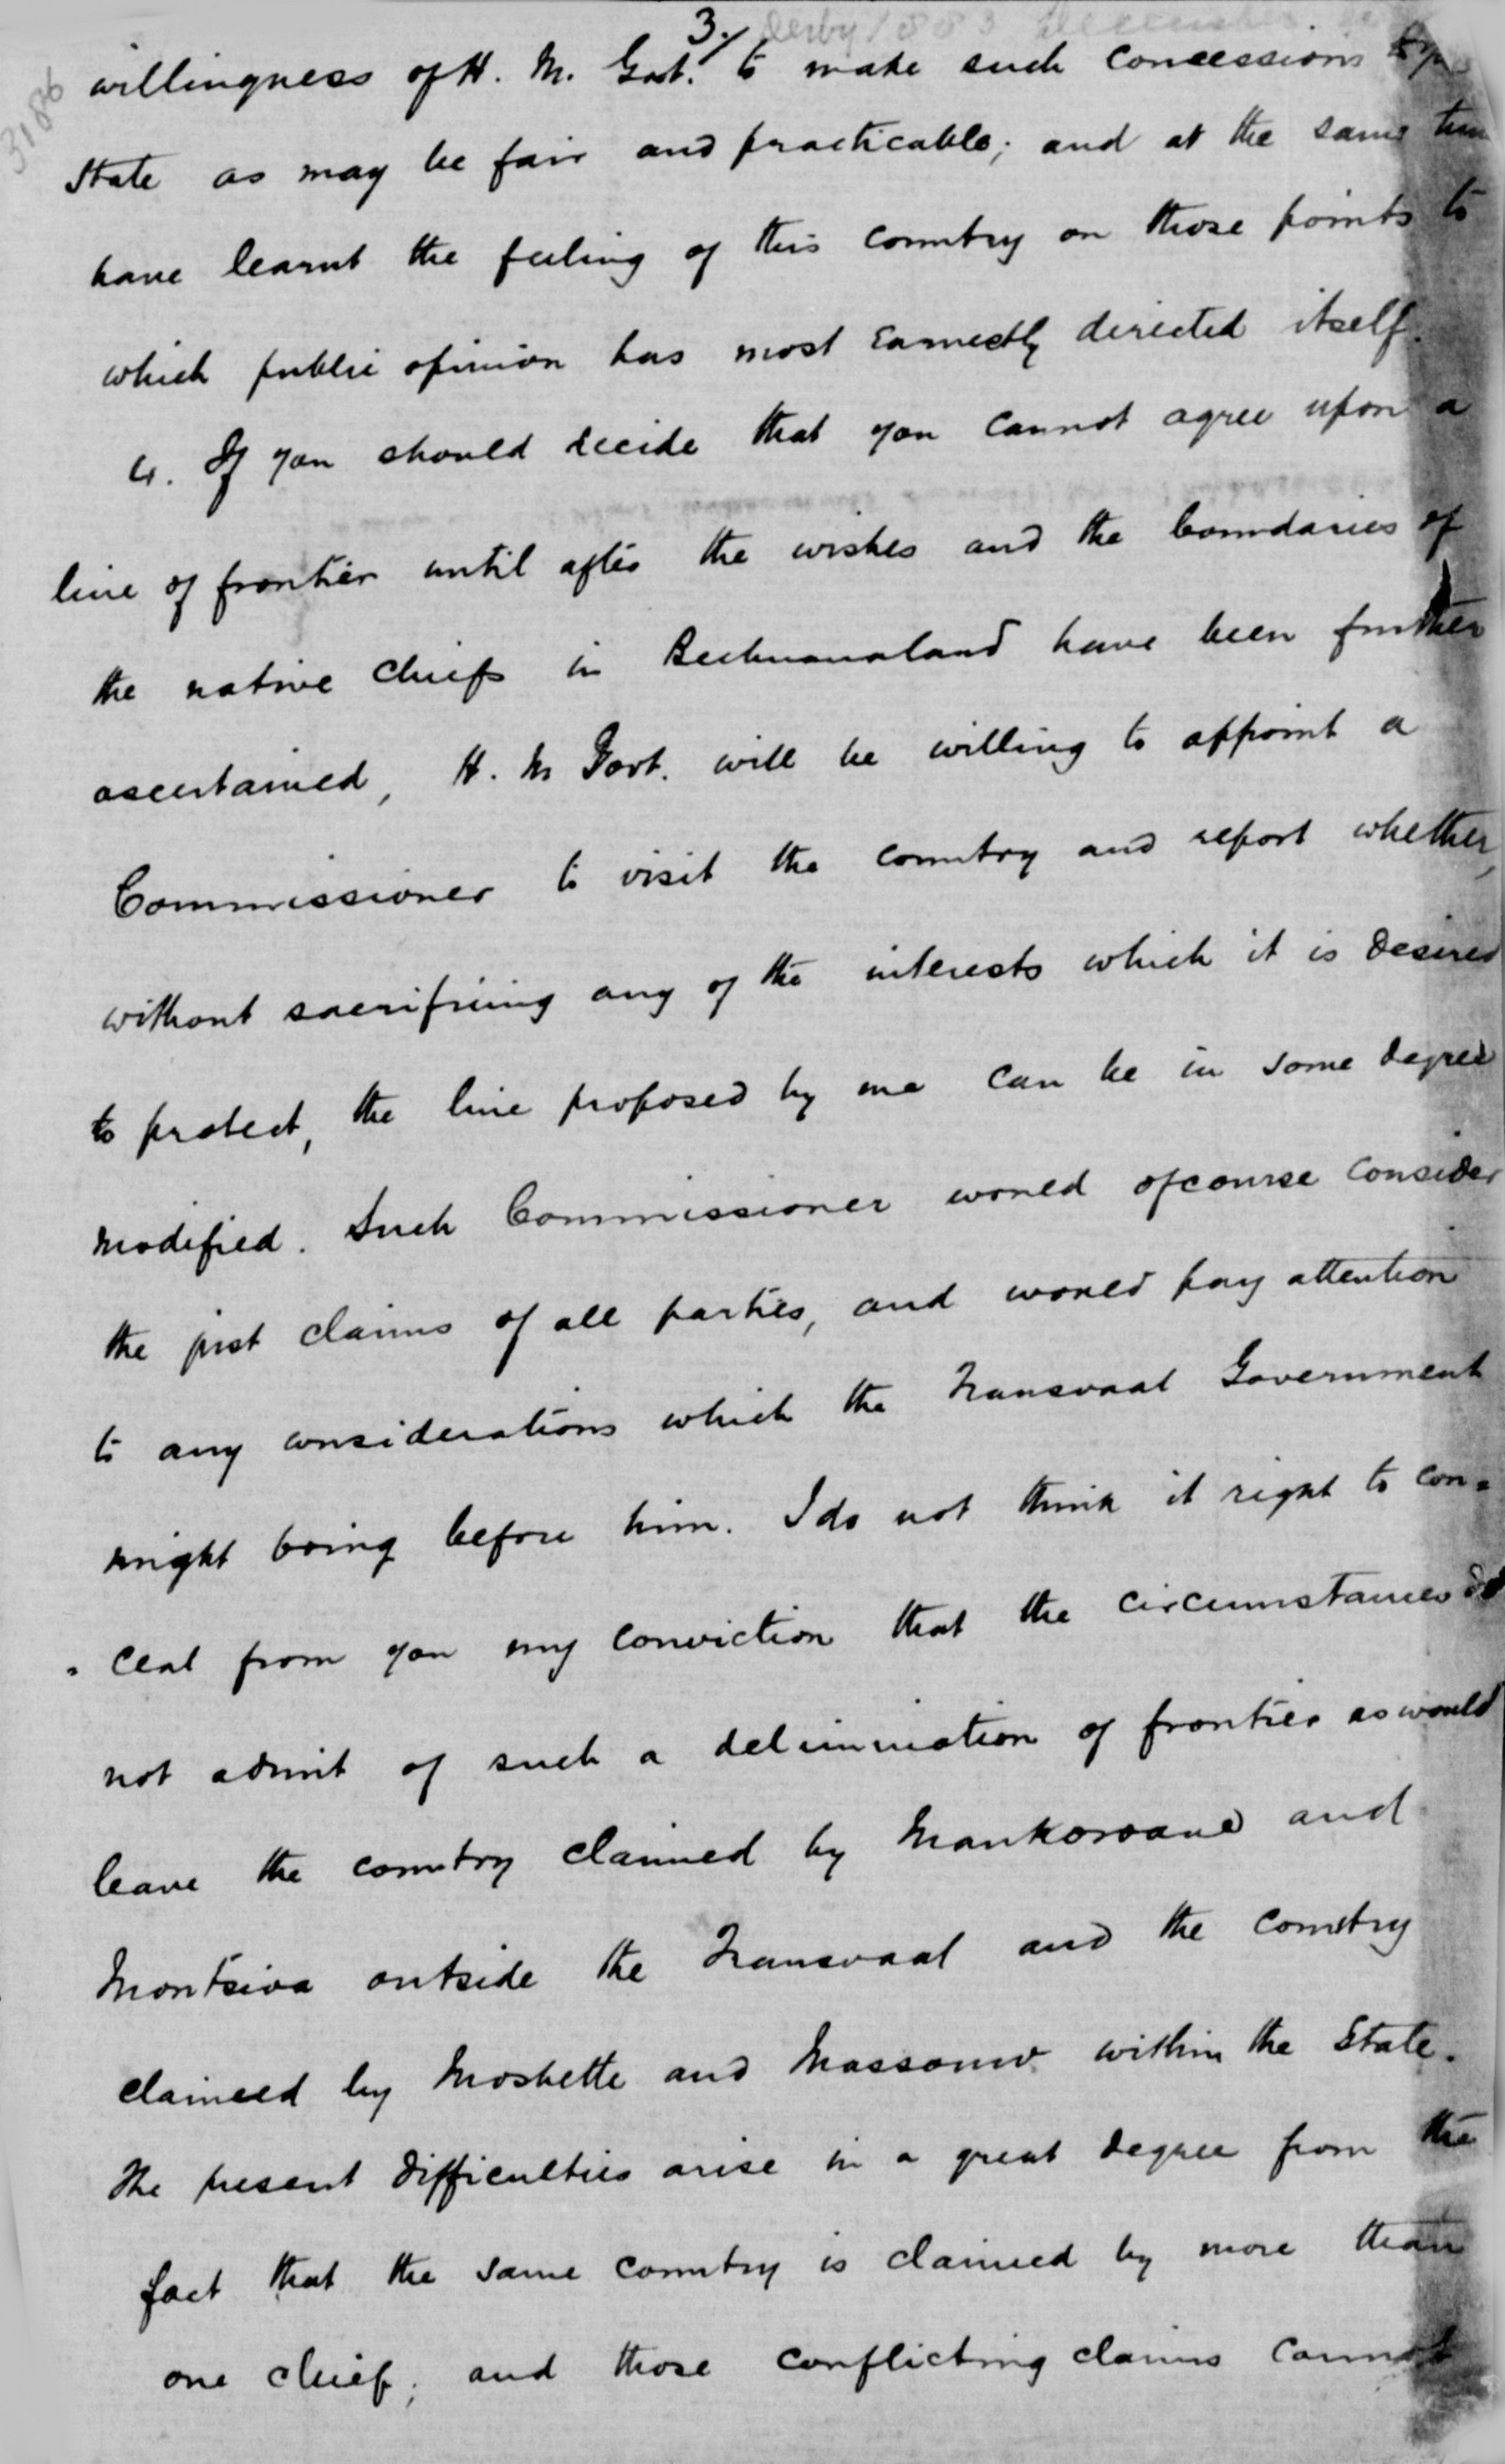 3./ Derby 1883 December
3186
willingness of H. M. Govt. to make such concessions to yr
State as may be fair and practicable; and at the same time
have learnt the feeling of this country on those points to
which public opinion has most earnestly directed itself.
4. If you should decide that you cannot agree upon a
line of frontier until after the wishes and the boundaries of
the native chiefs in Bechuanaland have been further
ascertained, H. M Govt. will be willing to appoint a
Commissioner to visit the country and report whether,
without sacrificing any of the interests which it is desired
to protect, the line proposed by me can be in some degree
modified. Such Commissioner would of course consider
the just claims of all parties, and would pay attention
to any considerations which the Transvaal Government
might bring before him. I do not think it right to con=
=ceal from you my conviction that the circumstances do
not admit of such a delimination of frontier as would
leave the country claimed by Mankoroane and
Montsioa outside the Transvaal and the country
claimed by Moshette and Massouw within the State.
The present difficulties arise in a great degree from the
fact that the same country is claimed by more than
one chief; and those conflicting claims cannot